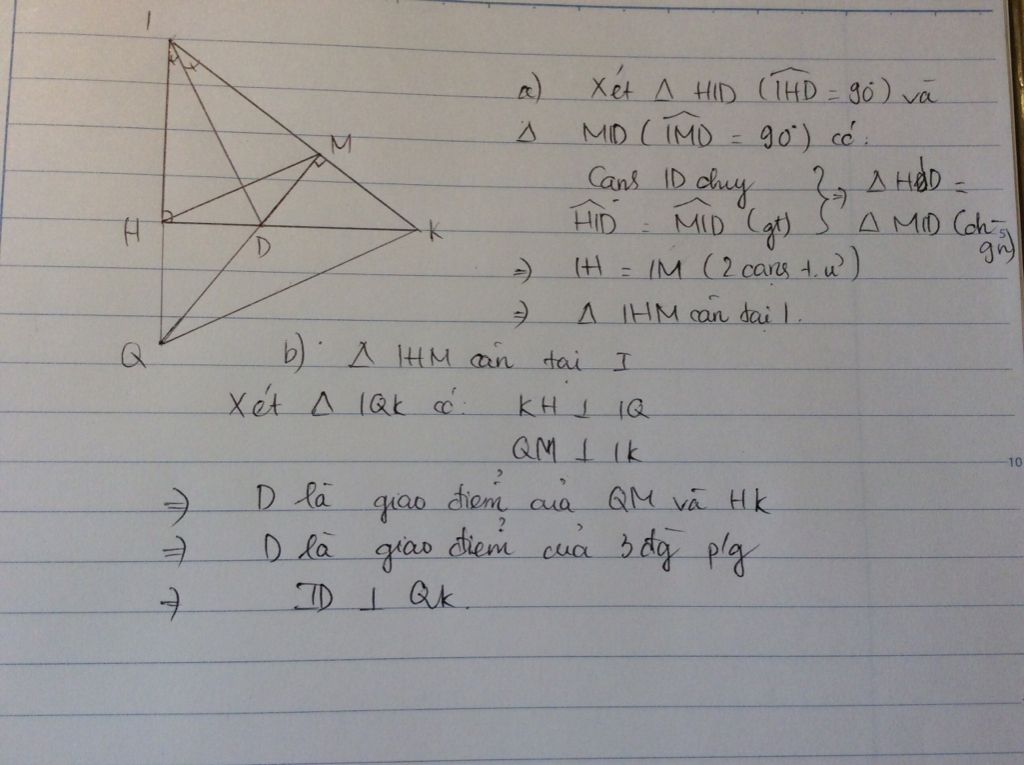 I
M
H
D
K
Q
a) Xét Δ HID (IHD = 90°) và
Δ MID (IMD = 90°) có:
Cạnh ID chug
HID = MID (gt)
} ⇒ Δ HID =
Δ MID (ch-
gn)
⇒ IH = IM (2 cạnh t.ư)
⇒ Δ IHM cân tại I.
b) Δ IHM cân tại I
Xét Δ IQK có: KH ⊥ IQ
QM ⊥ IK
⇒ D là giao điểm của QM và HK
⇒ D là giao điểm của 3 đg p/g
⇒ ID ⊥ QK.
10